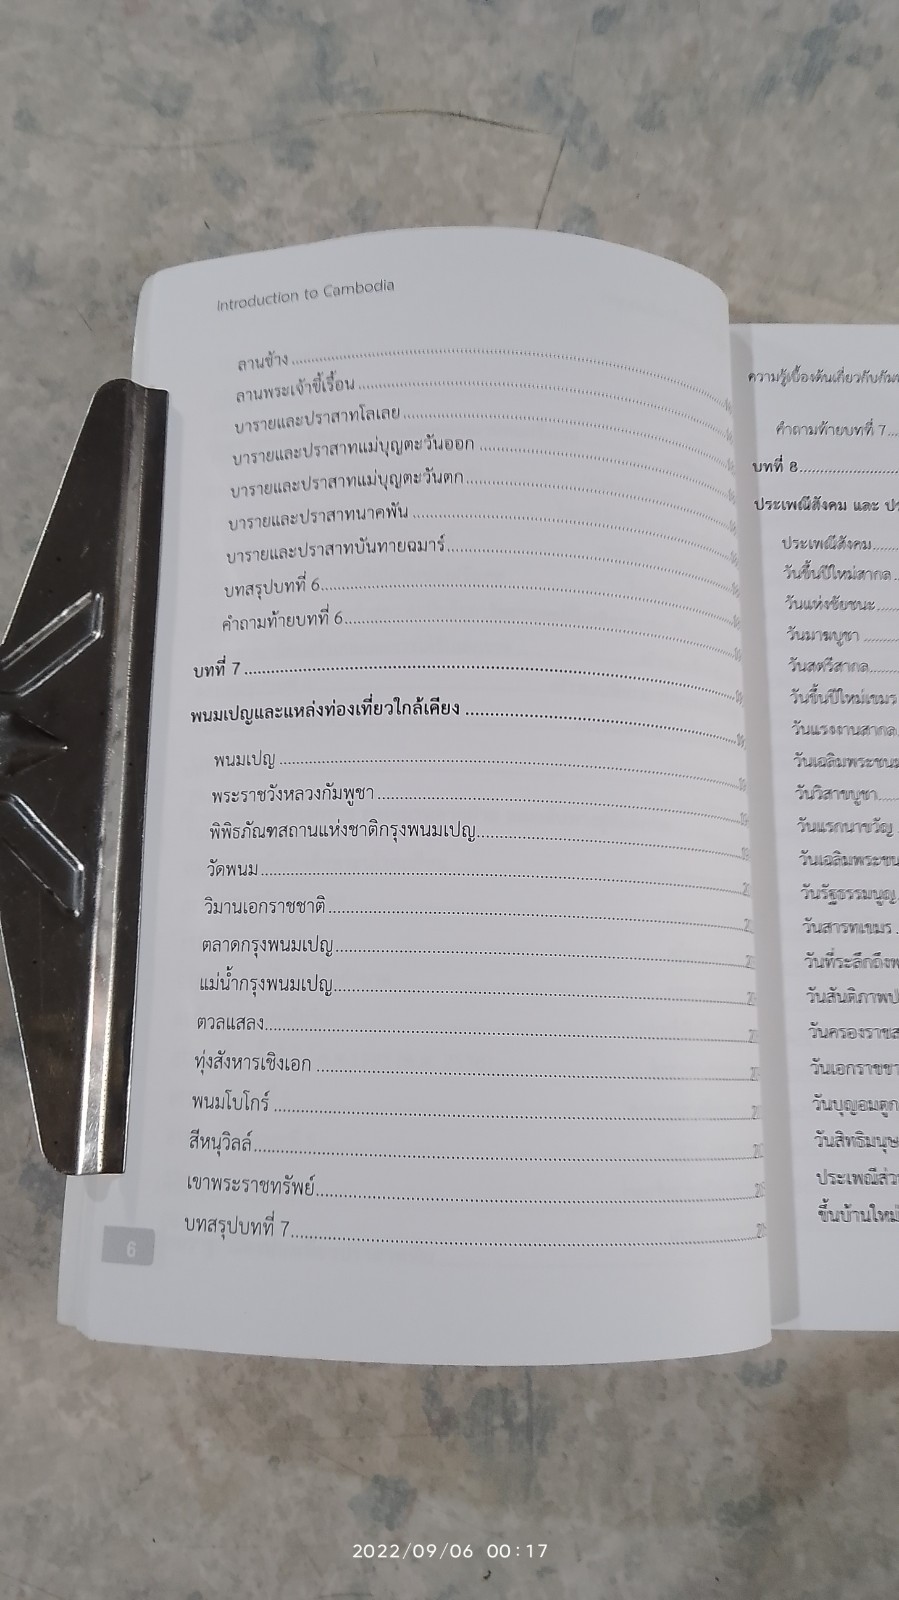 Introduction to Cambodia
ลานช้าง
ลานพระเจ้าขี้เรื้อน
บารายและปราสาทโลเลย
บารายและปราสาทแม่บุญตะวันออก
บารายและปราสาทแม่บุญตะวันตก
บารายและปราสาทนาคพัน
บารายและปราสาทบันทายฉมาร์
บทสรุปบทที่ 6
คำถามท้ายบทที่ 6
บทที่ 7
พนมเปญและแหล่งท่องเที่ยวใกล้เคียง
พนมเปญ
พระราชวังหลวงกัมพูชา
พิพิธภัณฑสถานแห่งชาติกรุงพนมเปญ
วัดพนม
วิมานเอกราชชาติ
ตลาดกรุงพนมเปญ
แม่น้ำกรุงพนมเปญ
ตวลแสลง
ทุ่งสังหารเชิงเอก
พนมโบโกร์
สีหนุวิลล์
เขาพระราชทรัพย์
บทสรุปบทที่ 7
6
ความรู้เบื้องต้นเกี่ยวกับกัมพ
คำถามท้ายบทที่ 7
บทที่ 8
ประเพณีสังคม และ ปร
ประเพณีสังคม
วันขึ้นปีใหม่สากล
วันแห่งชัยชนะ
วันมาฆบูชา
วันสตรีสากล
วันขึ้นปีใหม่เขมร
วันแรงงานสากล
วันเฉลิมพระชนม
วันวิสาขบูชา
วันแรกนาขวัญ
วันเฉลิมพระชน
วันรัฐธรรมนูญ
วันสารทเขมร
วันที่ระลึกถึงพ
วันสันติภาพป
วันครองราชส
วันเอกราชชา
วันบุญอมตูก
วันสิทธิมนุษ
ประเพณีส่ว
ขึ้นบ้านใหม่
2022/09/06 00:17